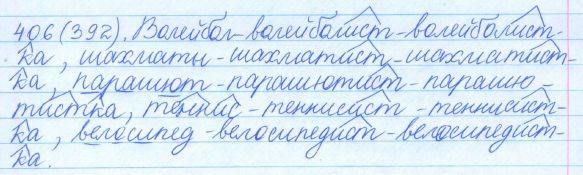 406 (392). Волейбол-волейболист-волейболист-
ка, шахматы-шахматист-шахматист-
ка, парашют-парашютист-парашю-
тистка, теннис-теннисист-теннисист-
ка, велосипед-велосипедист-велосипедист-
ка.